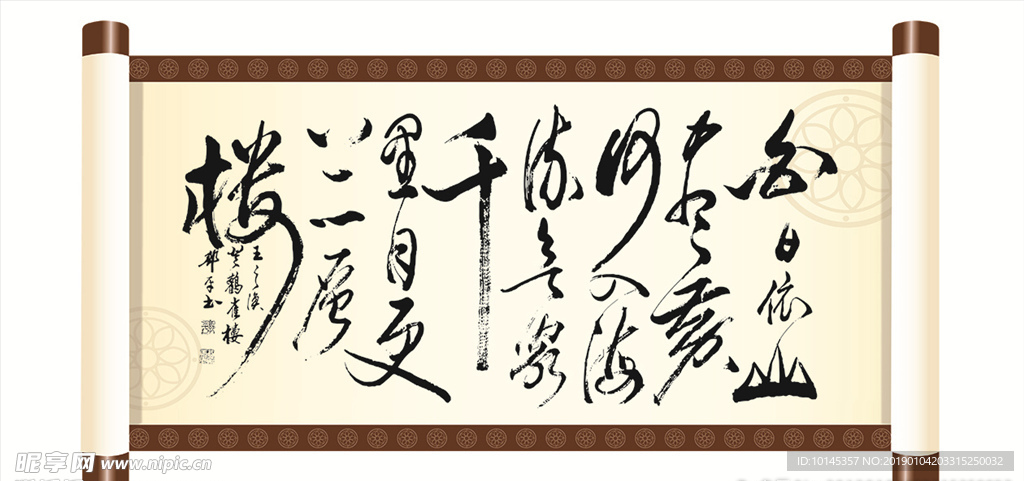 白日依山
盡黄
河入海
流欲窮
千
里目更
上一層
樓
王之渙
登鸛雀樓
昵享网 www.nipic.cn
ID:10145357 NO:20190104203315250032